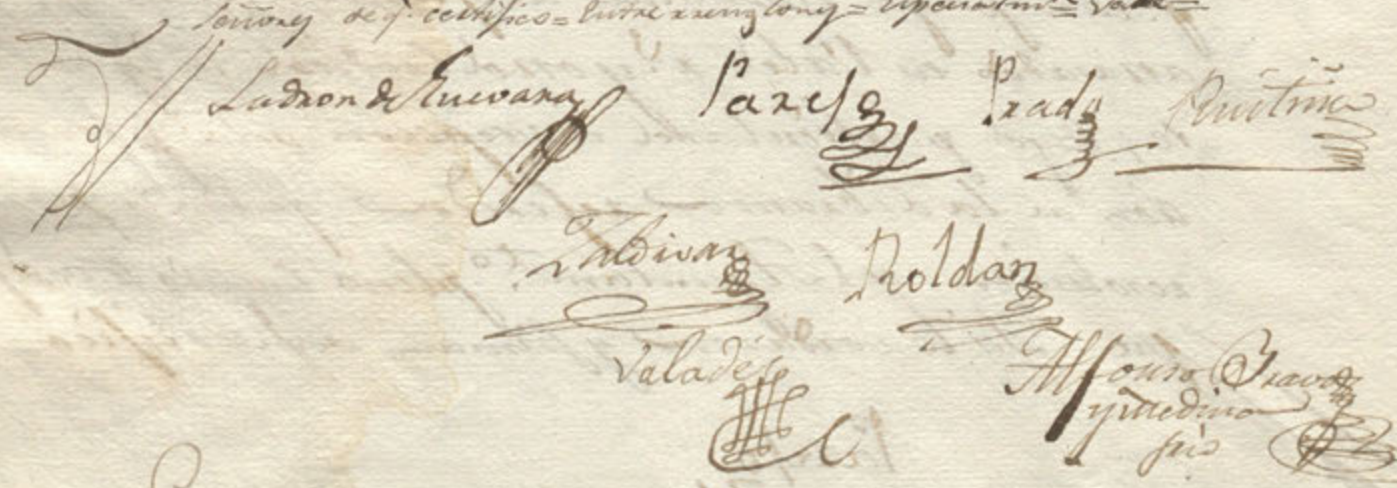 Señores de q.e certifico = Entre renglones = = Vale =
Ladron de Guevara Pareja Prado
Zaldivar Roldan
Valadés Alfonso Bravo
y Medina